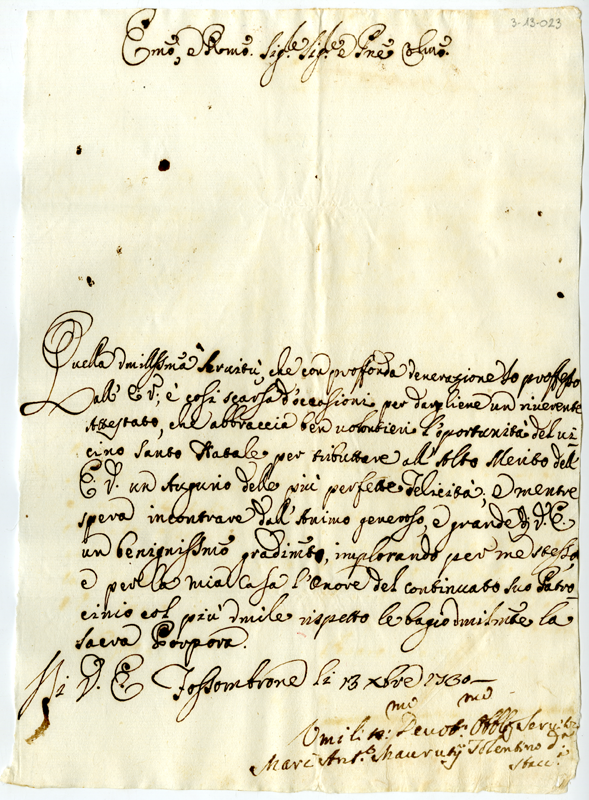 3-13-023
Emo, e Rmo. Sigre. Sigre. e Pne. Colmo.
Quella Umilissima Servitù, che con profonda Venerazione Io professo
all' E. V., è così scarsa d'occasioni per dargliene un riverente
Attestato, che abbraccia ben volontieri l'oportunità del vi
cino Santo Natale per tributtare all'Alto Merito dell'
E. V. un Augurio delle più perfette Felicità; e mentre
spera incontrare dall'Animo generoso, e grande di V. E.
un benignissimo gradimto, implorando per me stesso,
e per la mia Casa l'onore del continuato suo Patro
cinio col più umile rispetto le bagio umilmte la
sacra Porpora.
Di V. E. Fossombrone li 13 Xbre 1730
Umilismo Devotmo Obblo Servite
Marc Anto Maurutij Tolentino